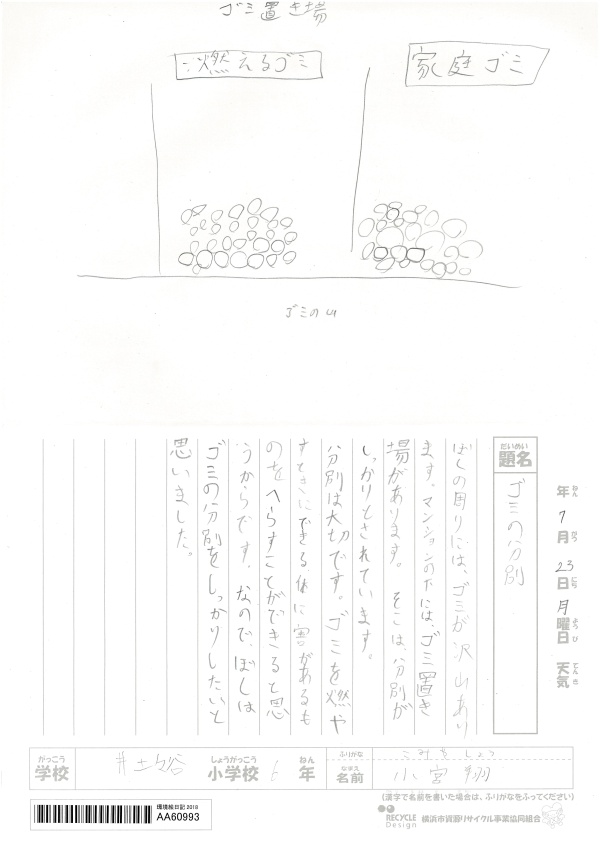 ゴミ置き場
燃えるゴミ
家庭ゴミ
ゴミの山
年ねん
7月がつ
23日にち
月曜日ようび
天気てんき
だいめい
題名
ゴミの分別
ぼくの周りには、ゴミが沢山あり
ます。マンションの下には、ゴミ置き
場があります。そこは、分別が
しっかりとされています。
分別は大切です。ゴミを燃や
すときにできる、体に害があるも
のをへらすことができると思
うからです。なので、ぼくは
ゴミの分別をしっかりしたいと
思いました。
がっこう
学校
井土ヶ谷
しょうがっこう
小学校
6
ねん
年
ふりがな
こみやしょう
なまえ
名前
小宮 翔
(漢字で名前を書いた場合は、ふりがなをふってください)
環境絵日記 2018
AA60993
RECYCLE Design
横浜市資源リサイクル事業協同組合